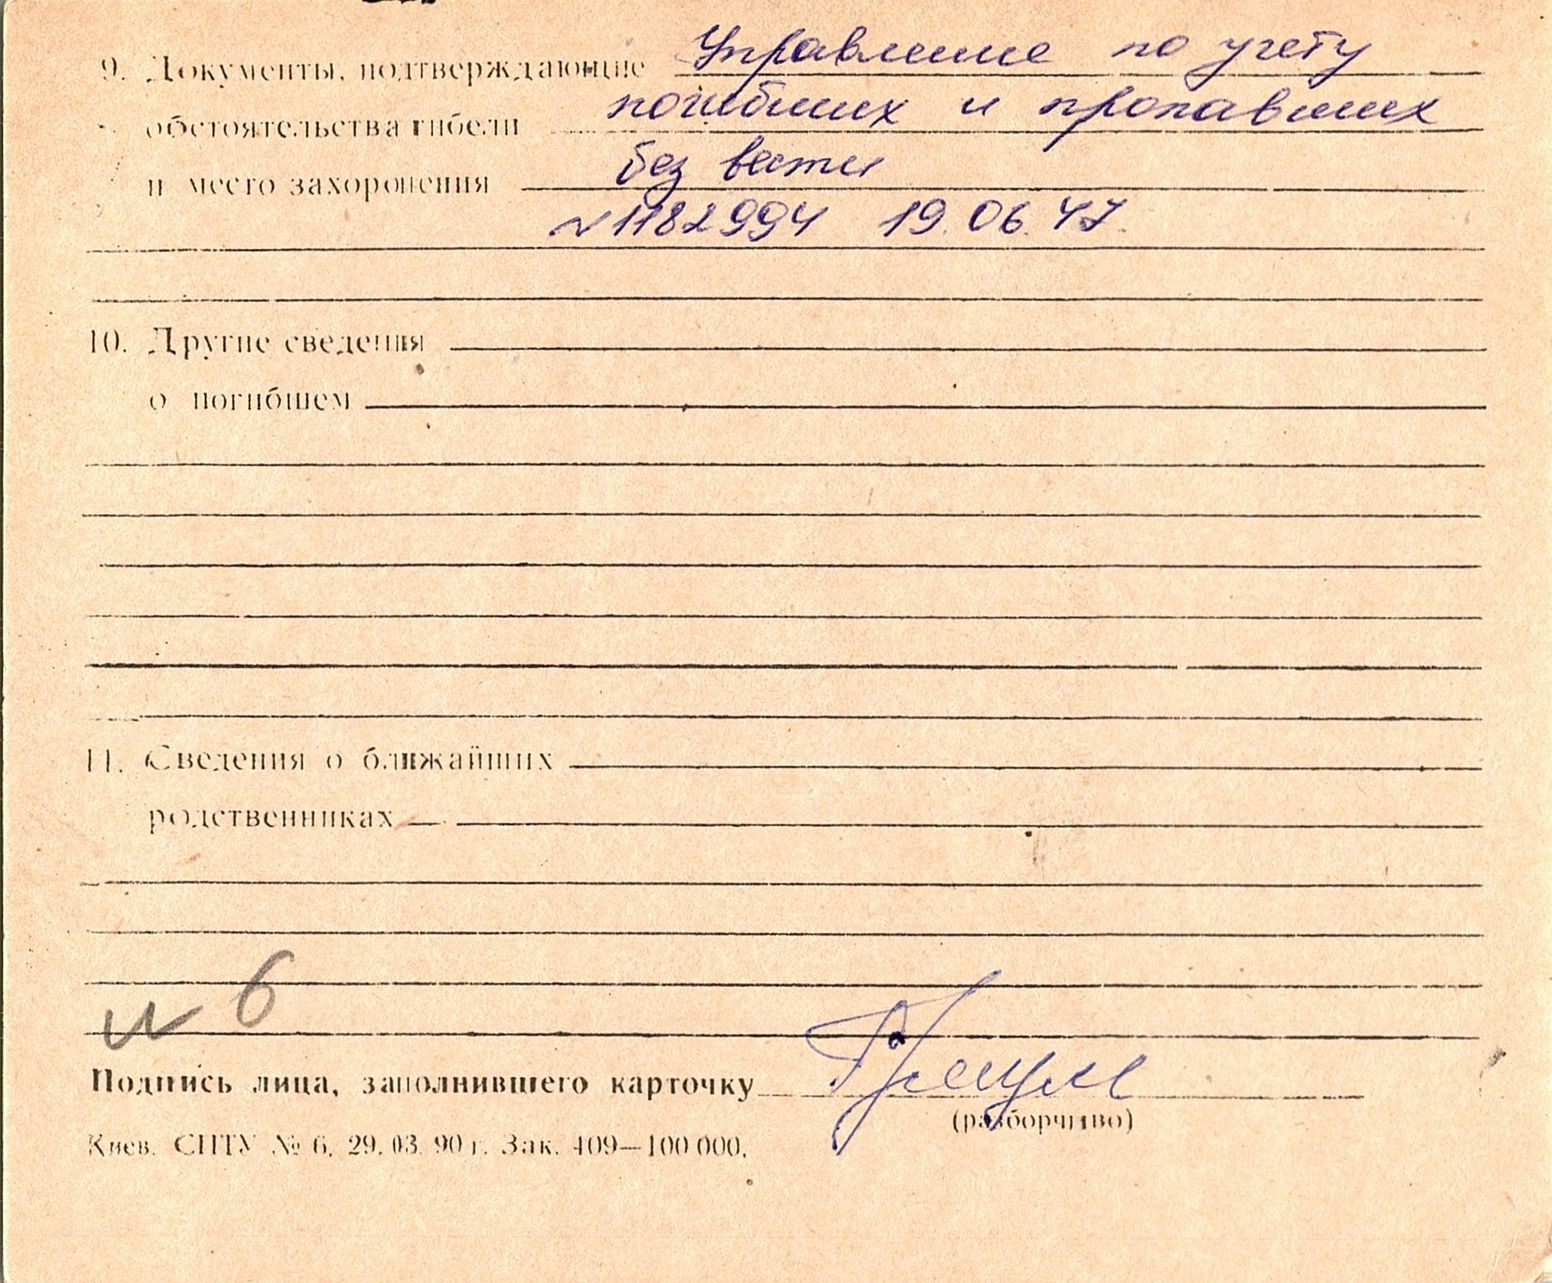 9. Документы, подтверждающие Управление по учету
обстоятельства гибели погибших и пропавших
и место захоронения без вести
№ 1182994 19.06.47.
10. Другие сведения
о погибшем
11. Сведения о ближайших
родственниках
№ 6
Подпись лица, заполнившего карточку
(разборчиво)
Киев. СПТУ № 6. 29.03.90 г. Зак. 409—100 000.